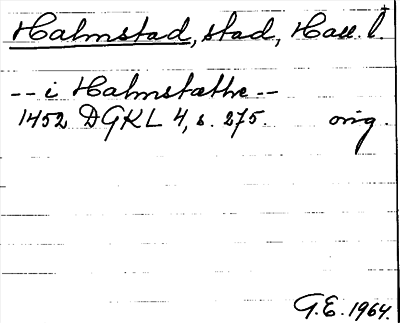 Halmstad, stad, Hall. l.
-- i Halmstæthe --
1452 DGKL 4, s. 275. orig.
G.E. 1964.